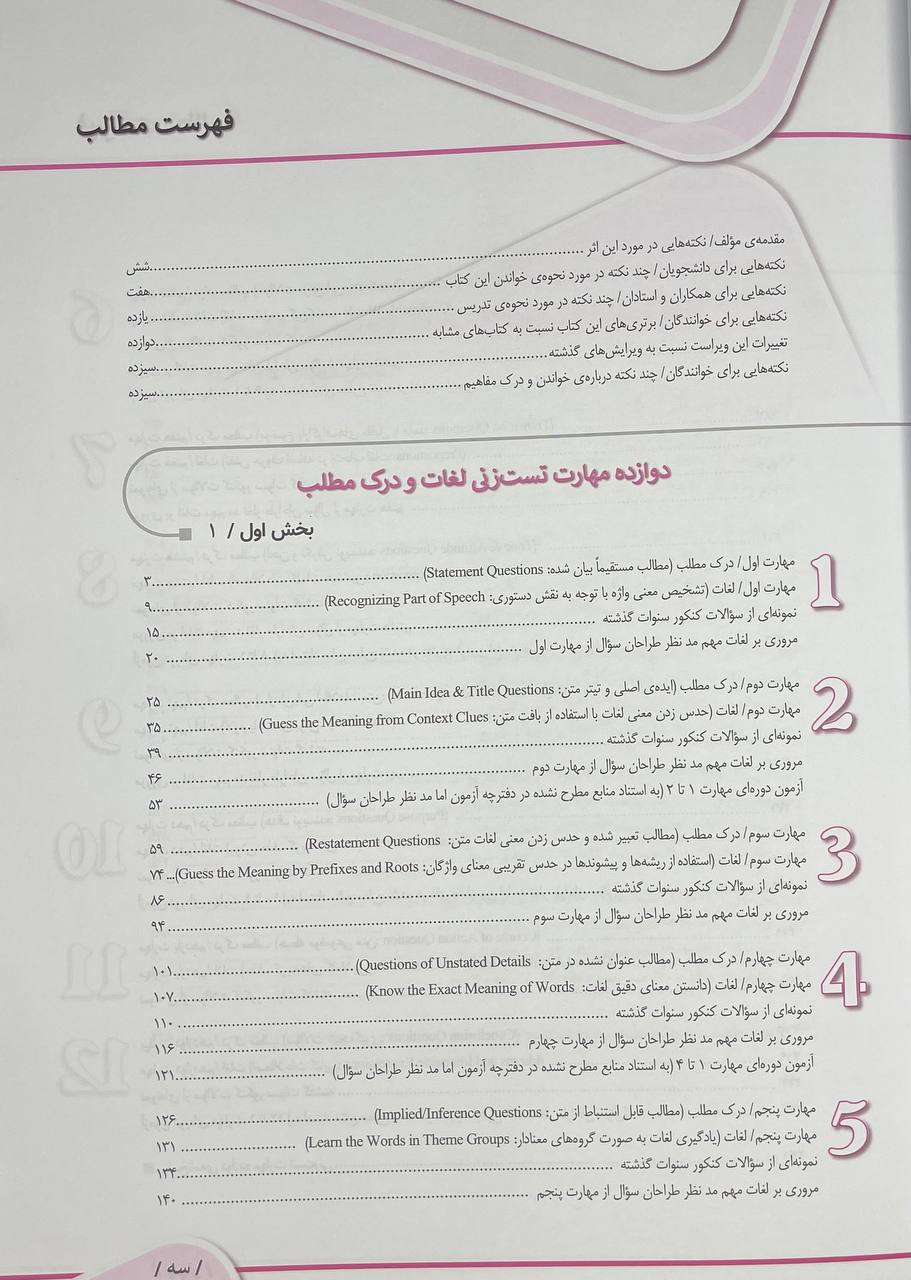 فهرست مطالب
مقدمه‌ی مؤلف/ نکته‌هایی در مورد این اثر ........ شش
نکته‌هایی برای دانشجویان/ چند نکته در مورد نحوه‌ی خواندن این کتاب ........ هفت
نکته‌هایی برای همکاران و استادان/ چند نکته در مورد نحوه‌ی تدریس ........ یازده
نکته‌هایی برای خوانندگان/ برتری‌های این کتاب نسبت به کتاب‌های مشابه ........ دوازده
تغییرات این ویراست نسبت به ویرایش‌های گذشته ........ سیزده
نکته‌هایی برای خوانندگان/ چند نکته درباره‌ی خواندن و درک مفاهیم ........ سیزده
دوازده مهارت تست‌زنی لغات و درک مطلب
بخش اول / ۱
1
مهارت اول/ درک مطلب (مطالب مستقیماً بیان شده: Statement Questions) ........ ۳
مهارت اول/ لغات (تشخیص معنی واژه با توجه به نقش دستوری: Recognizing Part of Speech) ........ ۹
نمونه‌ای از سؤالات کنکور سنوات گذشته ........ ۱۵
مروری بر لغات مهم مد نظر طراحان سؤال از مهارت اول ........ ۲۰
2
مهارت دوم/ درک مطلب (ایده‌ی اصلی و تیتر متن: Main Idea & Title Questions) ........ ۲۵
مهارت دوم/ لغات (حدس زدن معنی لغات با استفاده از بافت متن: Guess the Meaning from Context Clues) ........ ۳۵
نمونه‌ای از سؤالات کنکور سنوات گذشته ........ ۳۹
مروری بر لغات مهم مد نظر طراحان سؤال از مهارت دوم ........ ۴۶
آزمون دوره‌ای مهارت ۱ تا ۲ (به استناد منابع مطرح نشده در دفترچه آزمون اما مد نظر طراحان سؤال) ........ ۵۳
3
مهارت سوم/ درک مطلب (مطالب تعبیر شده و حدس زدن معنی لغات متن: Restatement Questions) ........ ۵۹
مهارت سوم/ لغات (استفاده از ریشه‌ها و پیشوندها در حدس تقریبی معنای واژگان: Guess the Meaning by Prefixes and Roots) ... ۷۴
نمونه‌ای از سؤالات کنکور سنوات گذشته ........ ۸۶
مروری بر لغات مهم مد نظر طراحان سؤال از مهارت سوم ........ ۹۴
4
مهارت چهارم/ درک مطلب (مطالب عنوان نشده در متن: Questions of Unstated Details) ........ ۱۰۱
مهارت چهارم/ لغات (دانستن معنای دقیق لغات: Know the Exact Meaning of Words) ........ ۱۰۷
نمونه‌ای از سؤالات کنکور سنوات گذشته ........ ۱۱۰
مروری بر لغات مهم مد نظر طراحان سؤال از مهارت چهارم ........ ۱۱۶
آزمون دوره‌ای مهارت ۱ تا ۴ (به استناد منابع مطرح نشده در دفترچه آزمون اما مد نظر طراحان سؤال) ........ ۱۲۱
5
مهارت پنجم/ درک مطلب (مطالب قابل استنباط از متن: Implied/Inference Questions) ........ ۱۲۶
مهارت پنجم/ لغات (یادگیری لغات به صورت گروه‌های معنادار: Learn the Words in Theme Groups) ........ ۱۳۱
نمونه‌ای از سؤالات کنکور سنوات گذشته ........ ۱۳۴
مروری بر لغات مهم مد نظر طراحان سؤال از مهارت پنجم ........ ۱۴۰
/ سه /